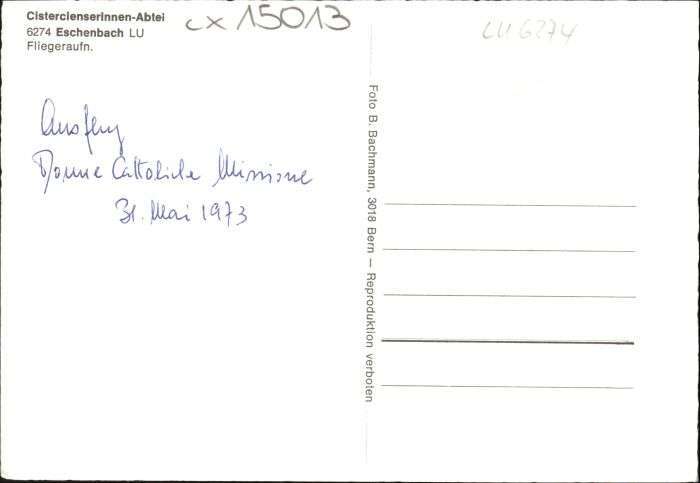 CistercienserInnen-Abtei
6274 Eschenbach LU
Fliegeraufn.
cx 15013
LU 6274
Ausflug
Donne Cattoliche Missione
31. Mai 1973
Foto B. Bachmann, 3018 Bern — Reproduktion verboten